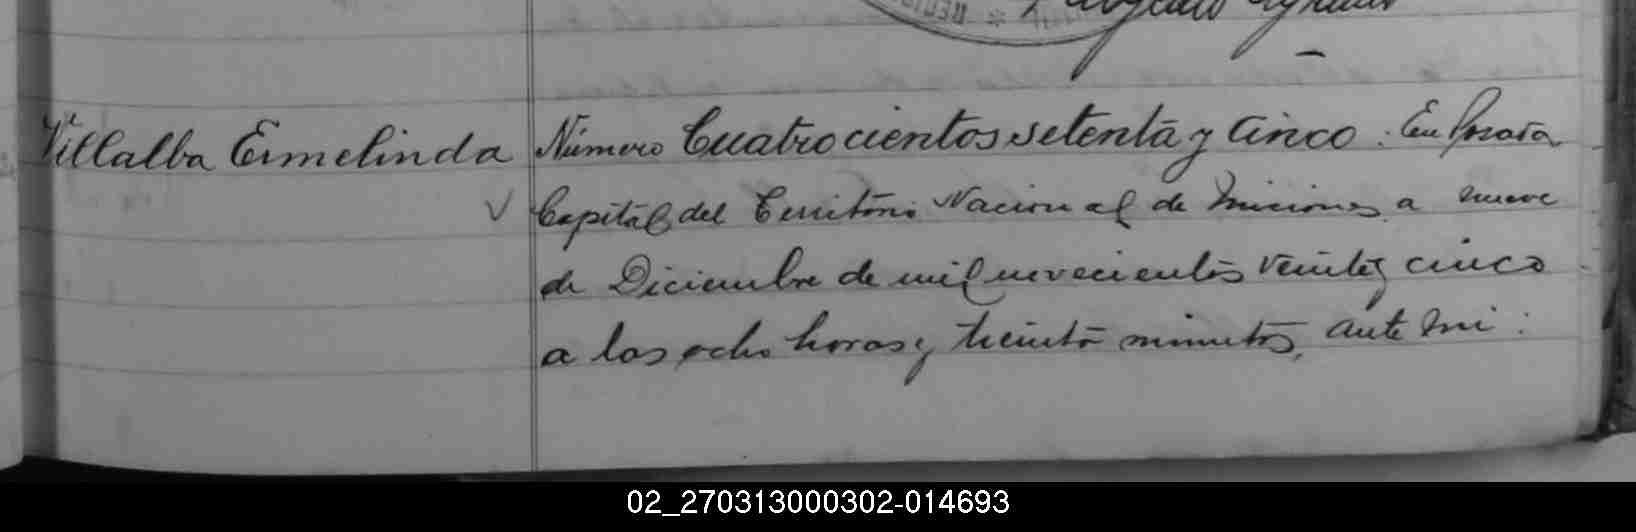 Villalba Ermelinda
Número Cuatrocientos setenta y Cinco. En Posada
Capital del Territorio Nacional de Misiones a nueve
de Diciembre de mil novecientos veinte y cinco
a las ocho horas y treinta minutos, ante mi:
02_270313000302-014693